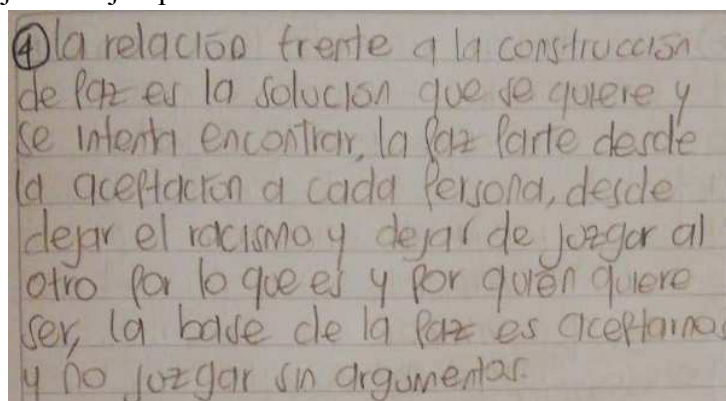 ④ la relación frente a la construcción
de Paz es la solución que se quiere y
se intenta encontrar, la Paz Parte desde
la aceptación a cada Persona, desde
dejar el racismo y dejar de juzgar al
otro por lo que es y por quién quiere
ser, la base de la Paz es aceptarnos
y no juzgar sin argumentos.